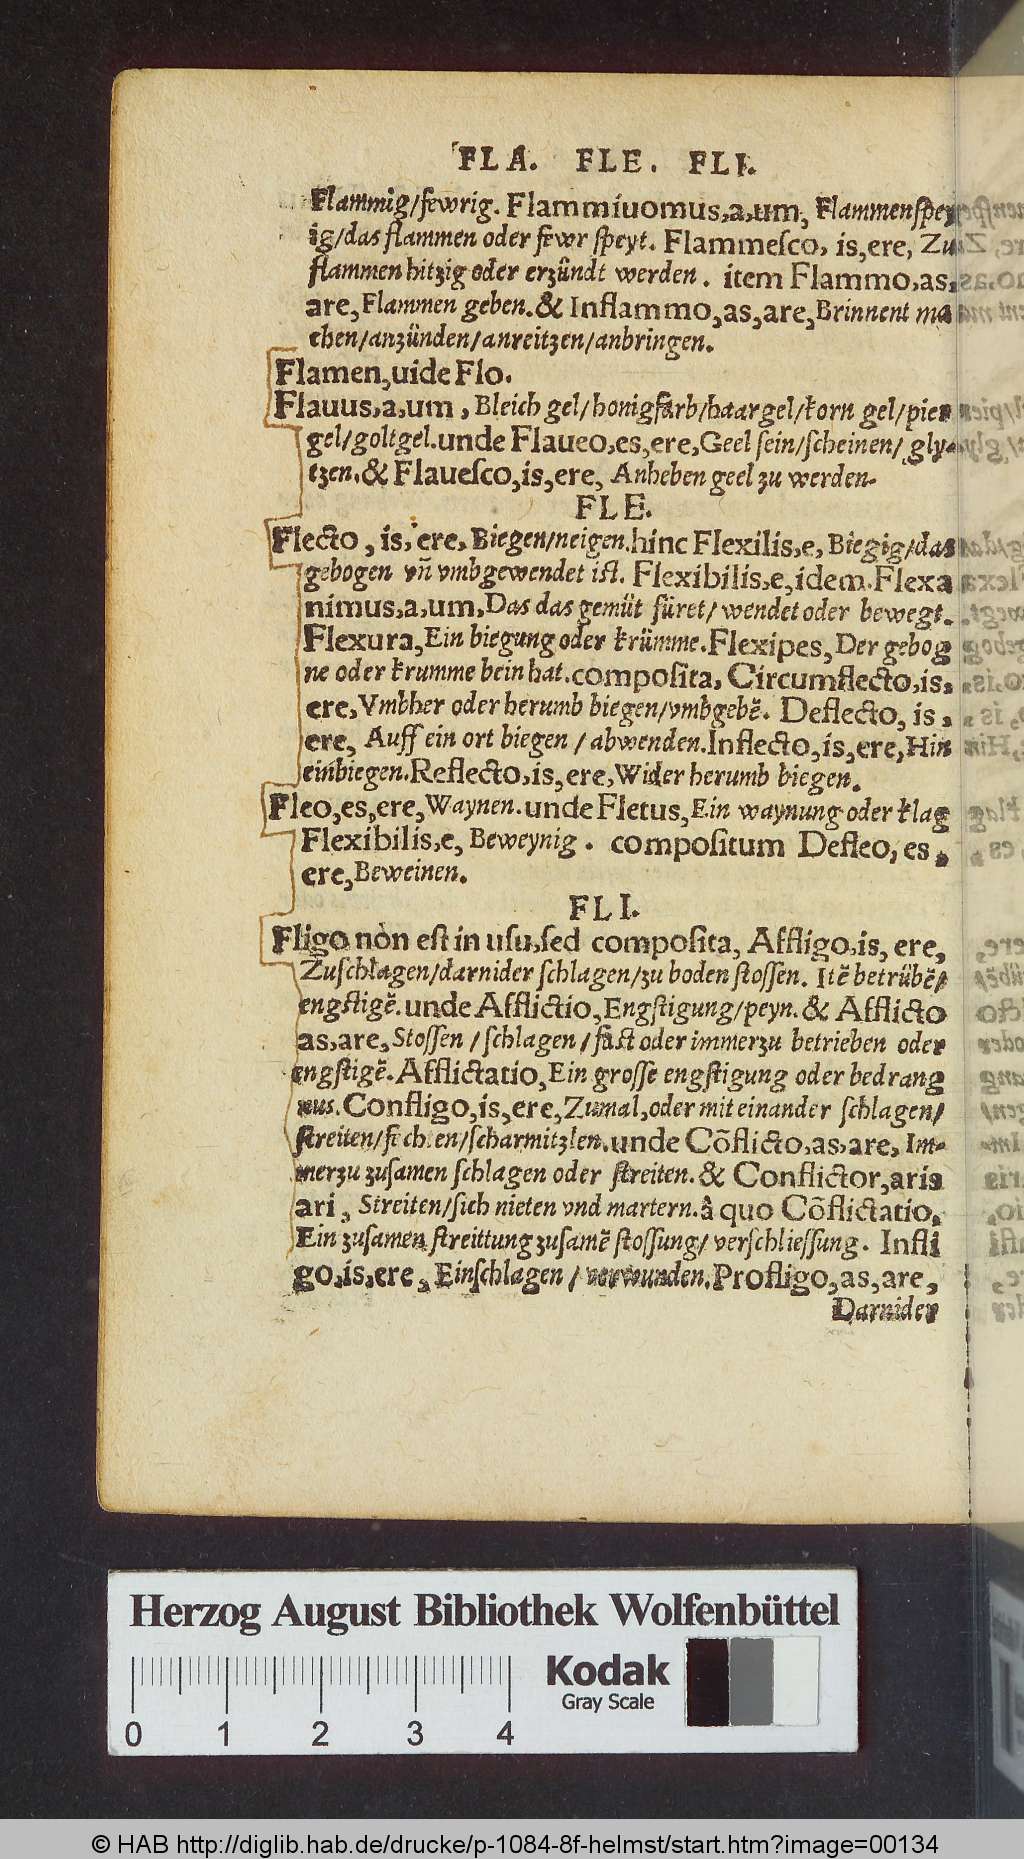 FLA. FLE. FLI.
Flammig/fewrig. Flammiuomus,a,um, Flammenspey
ig/das flammen oder fewr speyt. Flammeſco, is, ere, Zu
flammen hitzig oder erzündt werden. item Flammo,as,
are, Flammen geben. & Inflammo,as,are, Brinnent ma
chen/anzünden/anreitzen/anbringen.
Flamen,uide Flo.
Flauus,a,um, Bleich gel/honigfarb/haargel/korn gel/pier
gel/goltgel. unde Flaueo,es,ere, Geel sein/scheinen/ gly-
tzen. & Flaueſco,is,ere, Anheben geel zu werden.
FLE.
Flecto, is, ere, Biegen/neigen. hinc Flexilis,e, Biegig/das
gebogen vñ vmbgewendet ist. Flexibilis,e,idem. Flexa
nimus,a,um, Das das gemüt füret/ wendet oder bewegt.
Flexura, Ein biegung oder krümme. Flexipes, Der gebog
ne oder krumme bein hat. compoſita, Circumflecto,is,
ere, Vmbher oder herumb biegen/vmbgebē. Deflecto, is,
ere, Auff ein ort biegen / abwenden. Inflecto,is,ere, Hin
einbiegen. Reflecto,is,ere, Wider herumb biegen.
Fleo,es,ere, Waynen. unde Fletus, Ein waynung oder klag
Flexibilis,e, Beweynig. compoſitum Defleo, es,
ere, Beweinen.
FLI.
Fligo non eſt in uſu,ſed compoſita, Affligo,is, ere,
Zuſchlagen/darnider ſchlagen/zu boden ſtoſſen. Itē betrübē/
engſtigē. unde Afflictio, Engſtigung/peyn. & Afflicto
as,are, Stoſſen / ſchlagen / faſt oder immerzu betrieben oder
engſtigē. Afflictatio, Ein groſſe engſtigung oder bedrang
nus. Confligo,is,ere, Zumal,oder mit einander ſchlagen/
ſtreiten/fechten/ſcharmitzlen. unde Cōflicto,as,are, Im-
merzu zuſamen ſchlagen oder ſtreiten. & Conflictor,aris
ari, Streiten/ſich nieten vnd martern. à quo Cōflictatio,
Ein zuſamen ſtreittung zuſamē ſtoſſung/ verſchlieſſung. Infli
go,is,ere, Einſchlagen / verwunden. Profligo,as,are,
Darnider
Herzog August Bibliothek Wolfenbüttel
Kodak
Gray Scale
0 1 2 3 4
© HAB http://diglib.hab.de/drucke/p-1084-8f-helmst/start.htm?image=00134